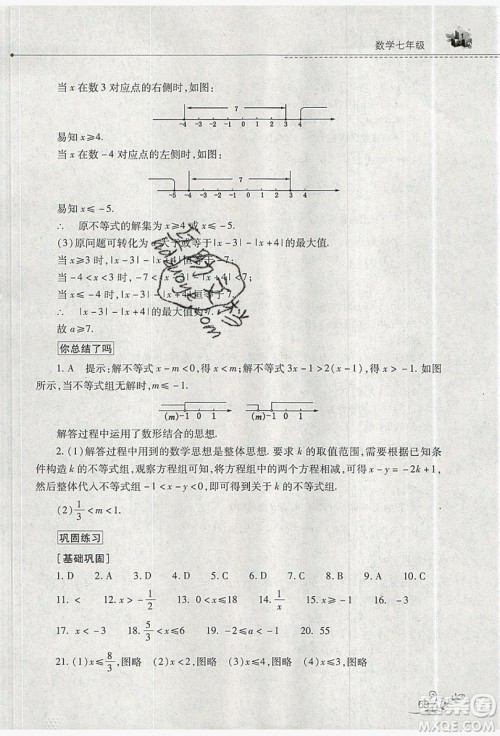 数学七年级
当 x 在数 3 对应点的右侧时,如图:
7
-4 -3 -2 -1 0 1 2 3 4
易知 x≥4.
当 x 在数 -4 对应点的左侧时,如图:
7
-5 -4 -3 -2 -1 0 1 2 3 4
易知 x≤-5.
∴ 原不等式的解集为 x≥4 或 x≤-5.
(3)原问题可转化为 a 大于或等于|x-3|-|x+4|的最大值.
当 x≥3 时,|x-3|-|x+4|恒等于
当 -4<x<3 时,-7<|x-3|-|x+4|
当 x≤-4 时,|x-3|-|x+4|恒等于
∴ |x-3|-|x+4|的最大值为 7.
故 a≥7.
你总结了吗
1. A 提示:解不等式 x-m<0,得 x<m.解不等式 3x-1>2(x-1),得 x>-1. 如图
所示,当不等式组无解时,m≤-1.
(m)-1 0 1 (m) -1 0 1
解答过程中运用了数形结合的思想.
2. (1)解答过程中用到的数学思想是整体思想. 要求 k 的取值范围,需要根据已知条
件构造 k 的不等式组,观察方程组可知,将方程组中的两个方程相加,可得 x-y=-2k+1,
然后整体代入不等式组 -1<x-y<0,即可得到关于 k 的不等式组.
(2) 1/3<m<1.
巩固练习
[基础巩固]
1. D 2. A 3. D 4. B 5. D 6. C 7. C 8. D 9. C 10. C
11. < 12. x>-1/2 13. x≤6 14. -2 15. 0 16. x<1/x<x²
17. x<-3 18. 5/3<x≤6 19. -2≤a<-1 20. 55
21. (1)x≤8/3,图略 (2)x≤4,图略 (3)x≤-2,图略